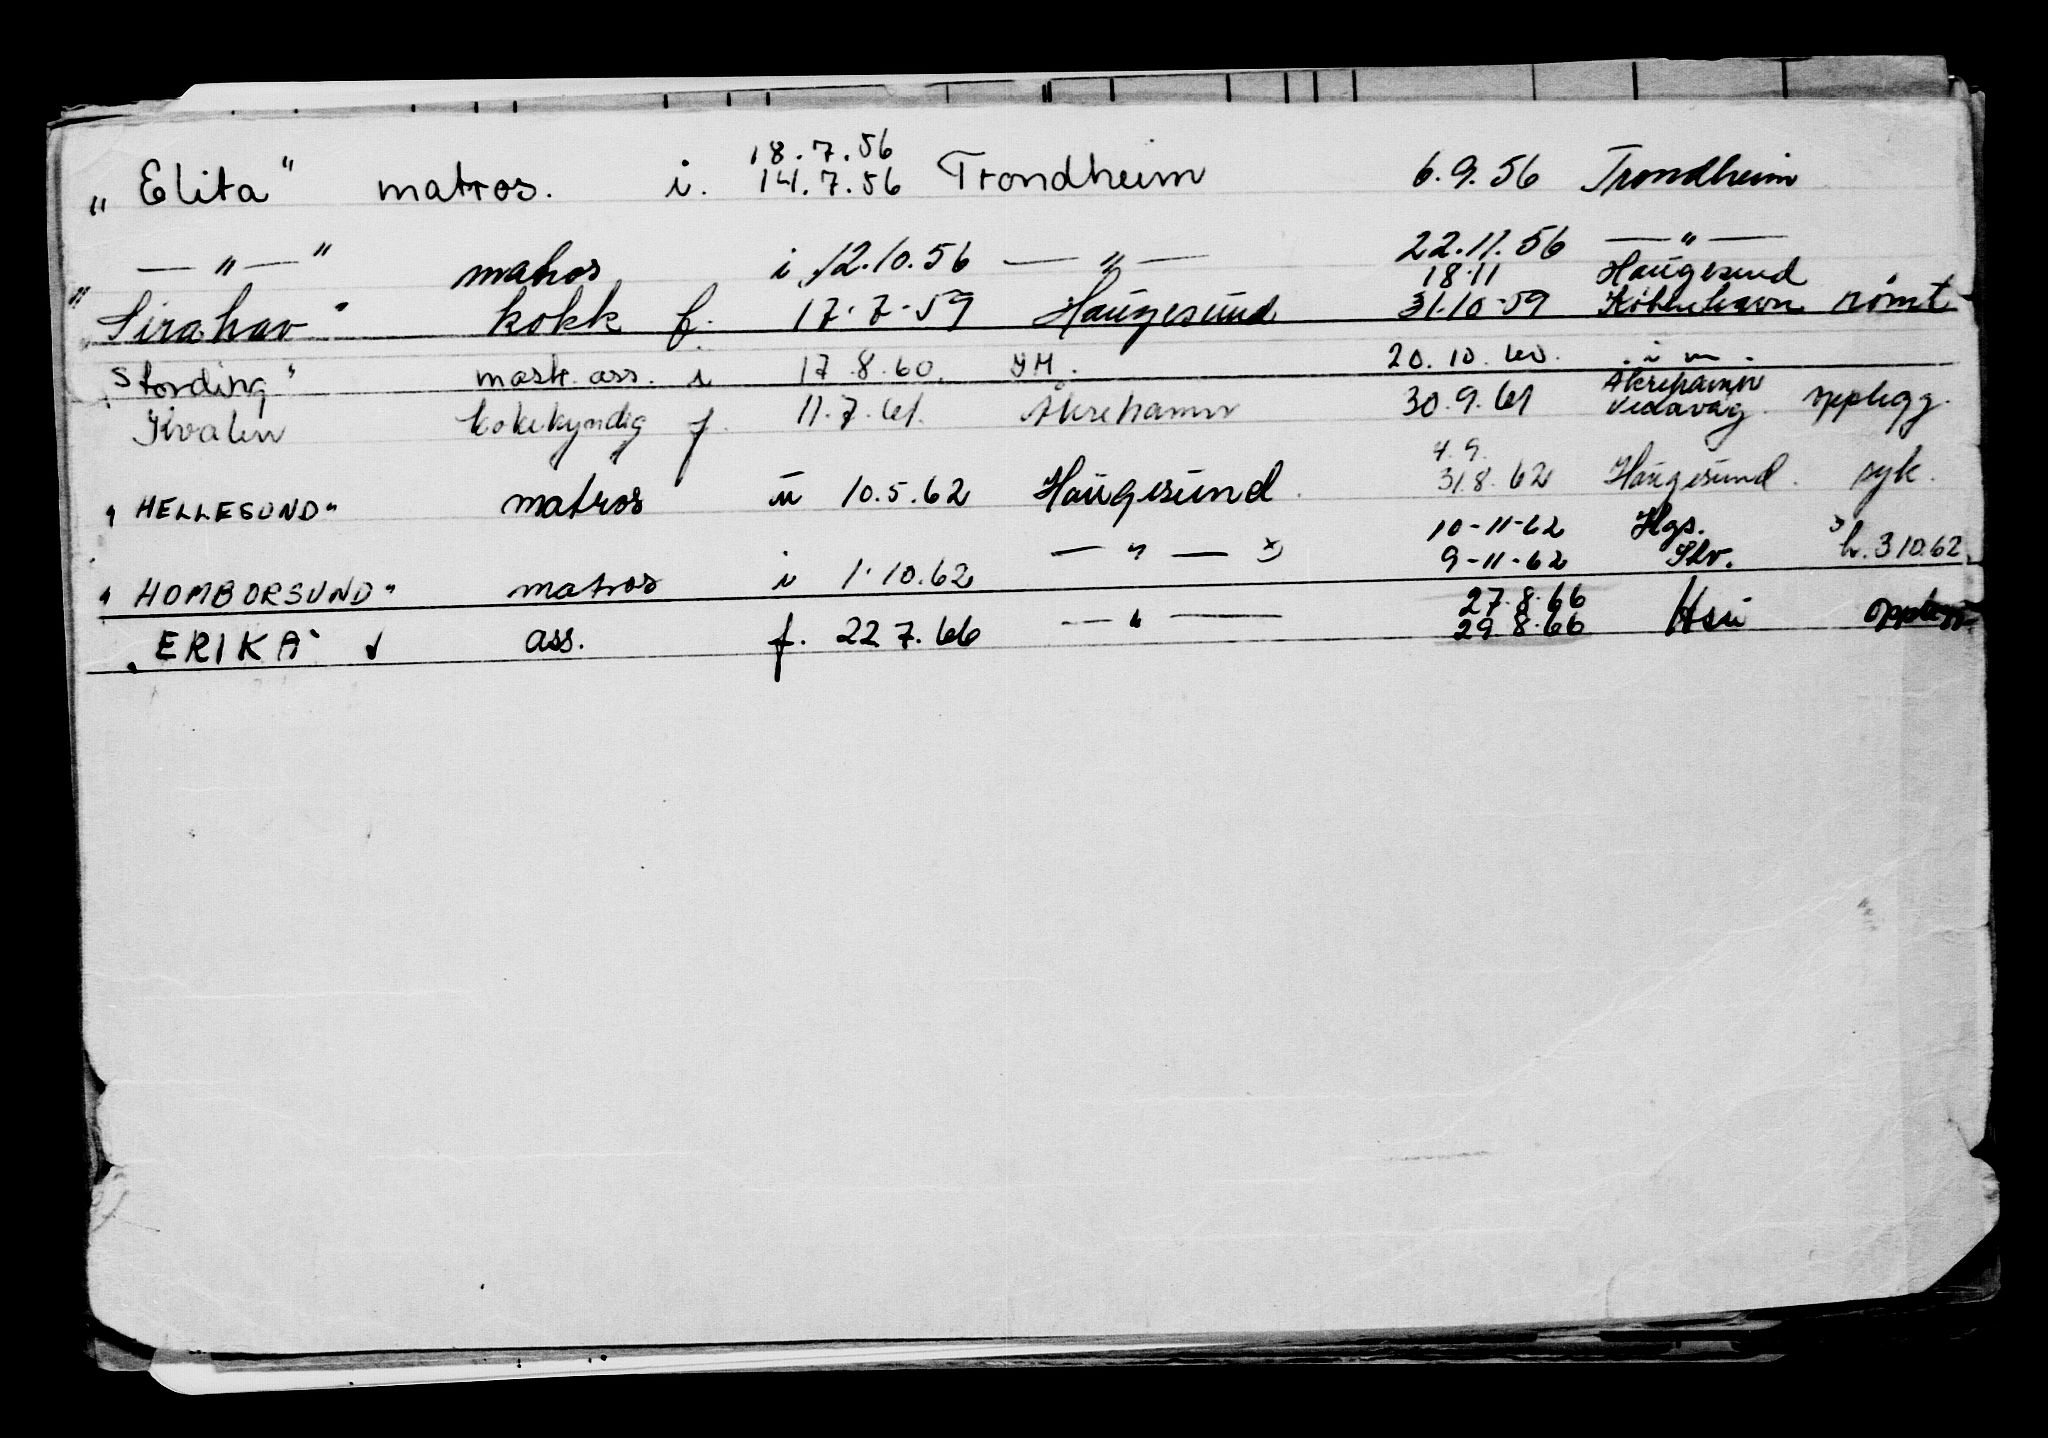 18.7.56
„Elita" matros. i. 14.7.56 Trondheim 6.9.56 Trondheim
— „ — " matros i 12.10.56 — „ — 22.11.56 — „ —
18.11 Haugesund
"Sirahav" kokk f. 17.7-59 Haugesund 31.10-59 København rømt
„Stording" mask. ass. i 17.8.60. 20.10.60.
Åkrehamn
Kvalen kokekyndig f. 11.7.61. Åkrehamn 30.9.61 Vedavåg. opplegg.
4.9.
"HELLESUND" matros u 10.5.62 Haugesund. 31.8.62 Haugesund. syk.
10-11-62 Hgs.
"HOMBORSUND" matros i 1.10.62 — " — x) 9-11-62 Slv. x) h. 3 10.62.
27.8.66
„ERIKA" ass. f. 22 7.66 — " — 29.8.66 opplegg